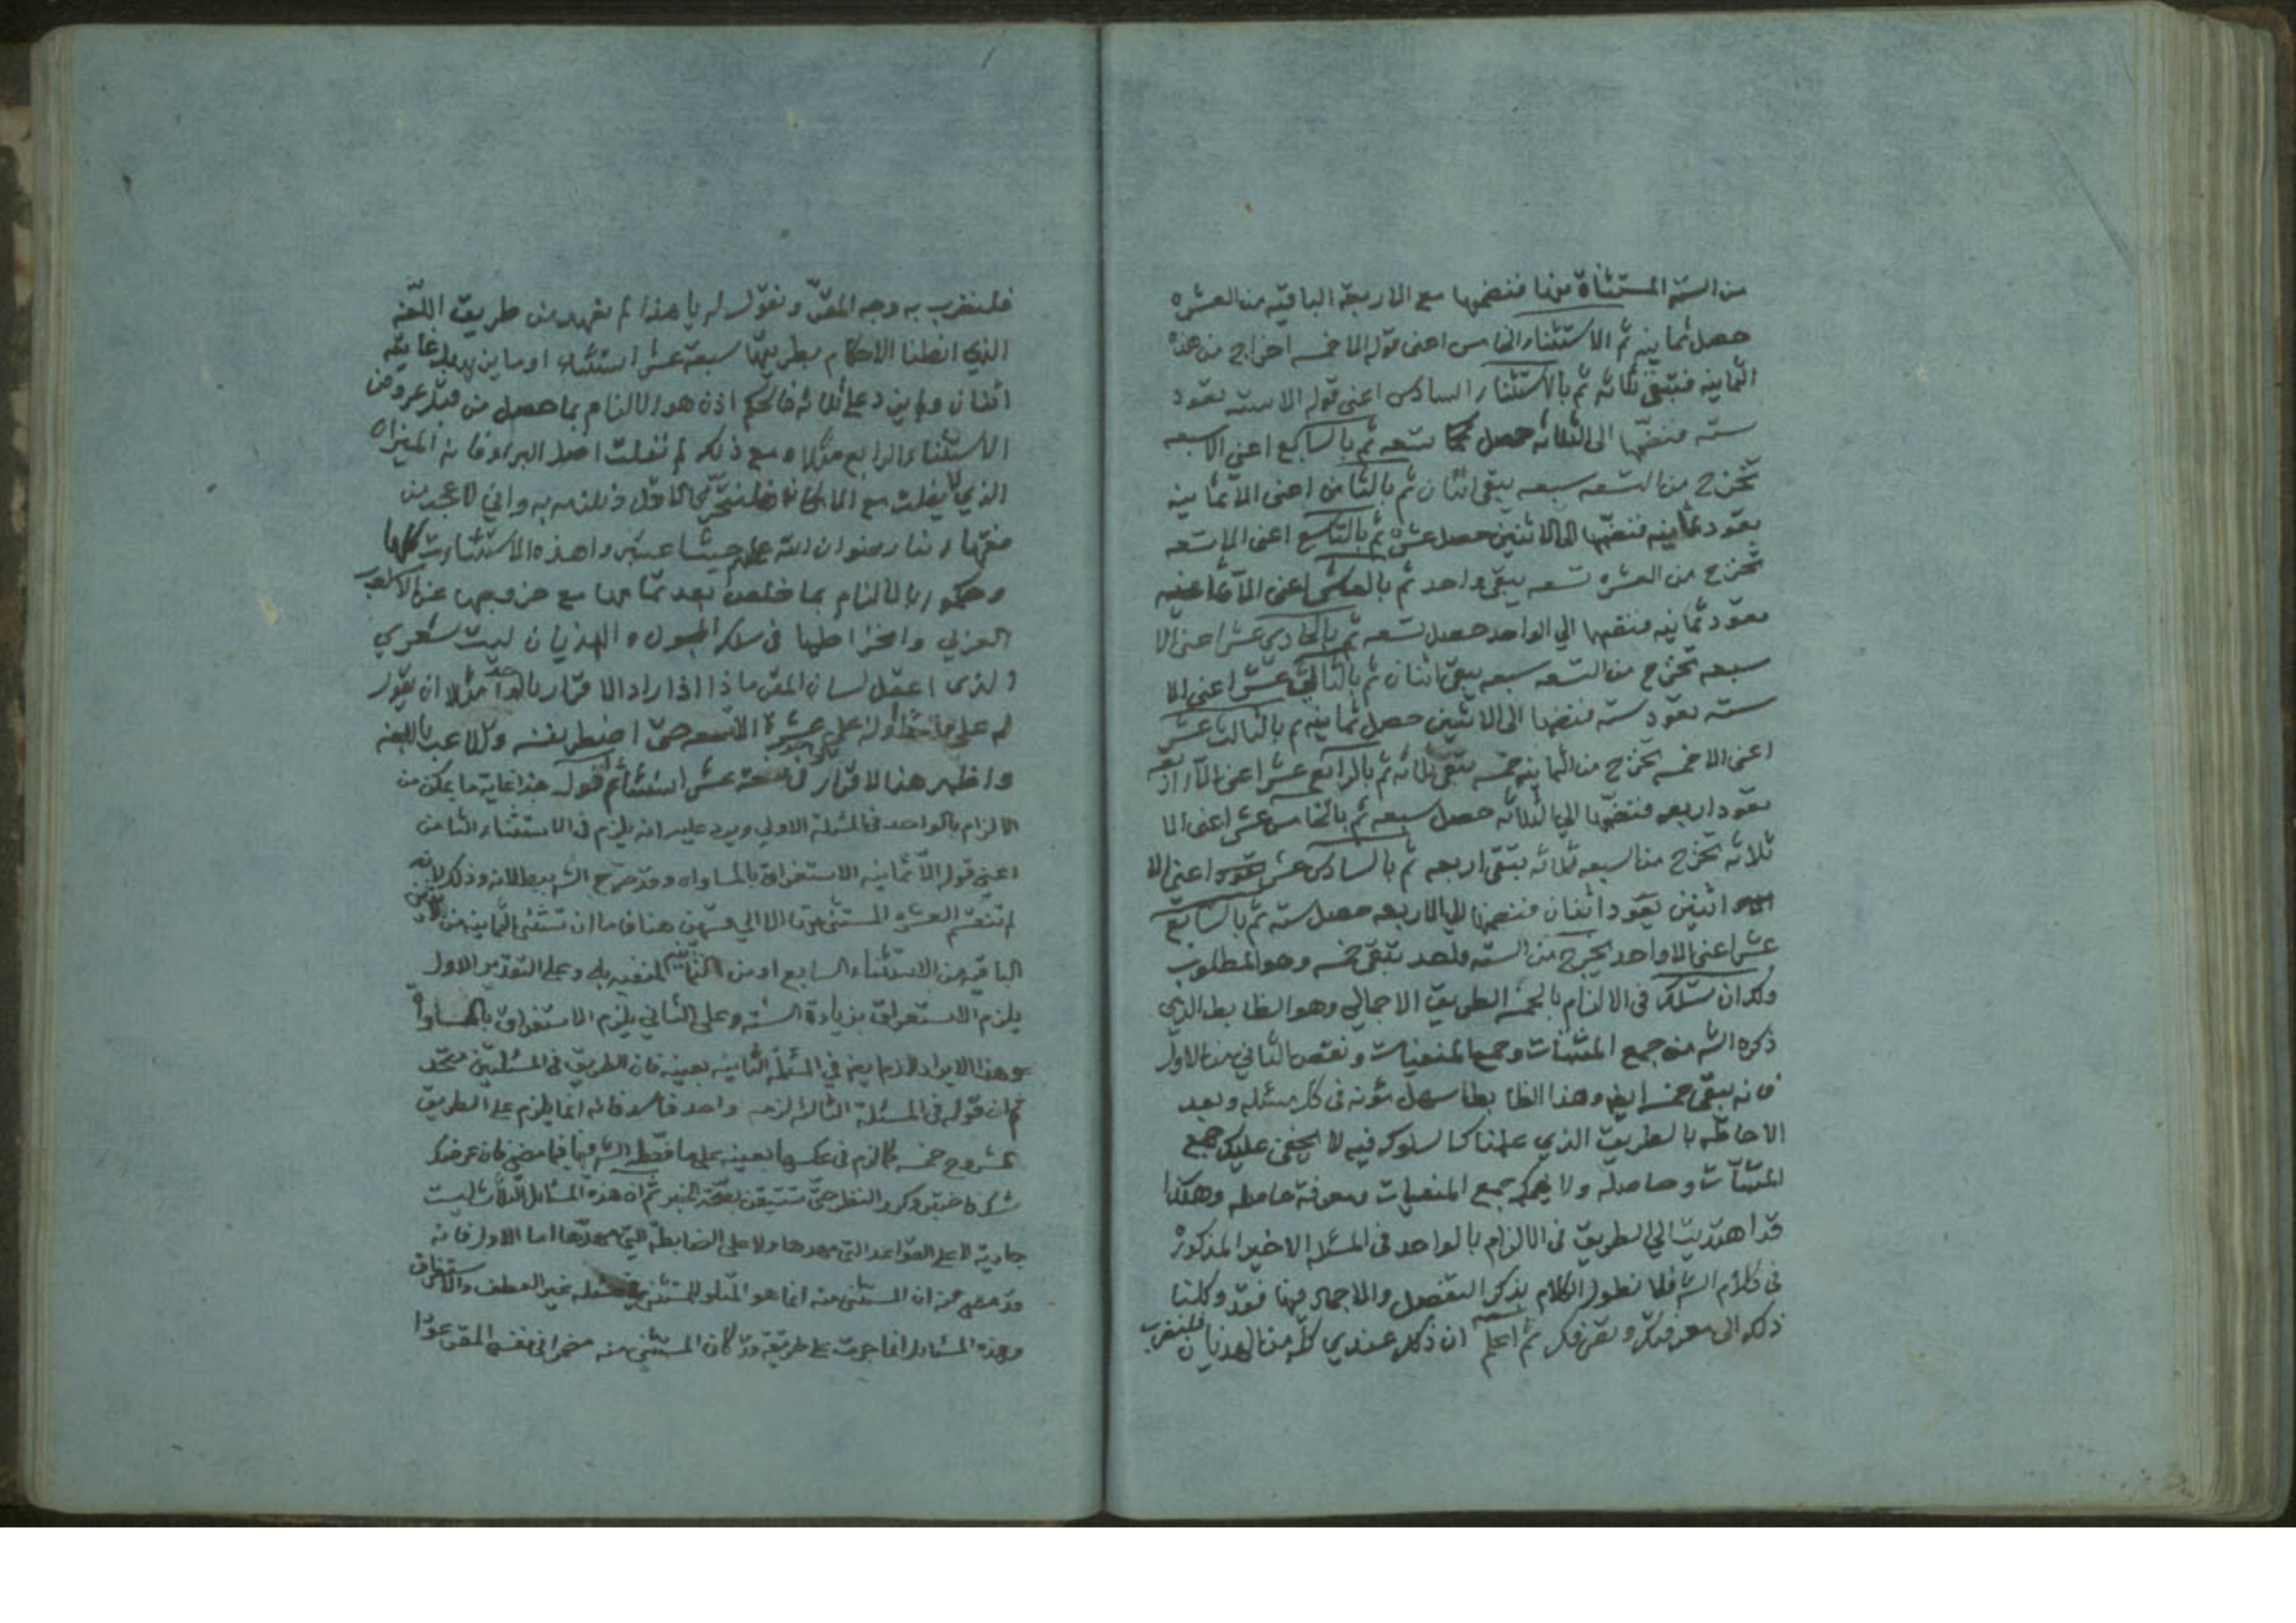 من الستة المستثناة منها فنضمها مع الاربعة الباقية من العشره
حصل ثمانيه ثم الاستثناء الخامس اعنى قوله الا خمسه اخراج من هذه
الثمانيه فتبقى ثلاثه ثم بالاستثناء السادس اعنى قوله الا سته تعود
سته فنضمها الى الثلاثه حصل تسعه ثم بالسابع اعنى الا سبعه
تخرج من التسعه سبعه يبقى اثنان ثم بالثامن اعنى الا ثمانيه
تعود ثمانيه فنضمها الى الاثنين حصل عشره ثم بالتاسع اعنى الا تسعه
تخرج من العشره تسعه يبقى واحد ثم بالعاشر اعنى الا ثمانيه
تعود ثمانيه فنضمها الي الواحد حصل تسعه ثم بالحادي عشر اعنى الا
سبعه تخرج من التسعه سبعه يبقى اثنان ثم بالثاني عشر اعنى الا
سته تعود سته فنضمها الى الاثنين حصل ثمانيه ثم بالثالث عشر
اعنى الا خمسه تخرج من الثمانيه خمسه تبقى ثلاثه ثم بالرابع عشر اعنى الا اربعه
تعود اربعه فنضمها الي الثلاثه حصل سبعه ثم بالخامس عشر اعنى الا
ثلاثه تخرج من السبعه ثلاثه تبقى اربعه ثم بالسادس عشر اعنى الا
اثنين تعود اثنان فنضمها الي الاربعه حصل سته ثم بالسابع
عشر اعنى الا واحد يخرج من الستة واحد تبقى خمسه وهو المطلوب
ولك ان تسلك فى الالزام بالخمسه الطريق الاجمالي وهو الظابط الذي
ذكره الش من جمع المثبتات وجمع المنفيات ونقص الثاني من الاول
فانه يبقى خمسه ايض وهذا الظابط سهل مؤنه فى كل مسئله وبعد
الاحاطة بالطريق الذي علمناك السلوك فيه لا يخفى عليك جمع
المثبتات وحاصله ولا جمع المنفيات ومعرفة حاصله وهكذا
قد اهتديت الي الطريق فى الالزام بالواحد فى المسئله الاخير المذكوره
فى كلام الش فلا نطول الكلام بذكر التفصيل والاجمال فيها فقد وكلنا
ذلك الى معرفتك ثم اعلم ان ذلك عندي كله من الهذيان فلنضرب
فلنضرب به وجه المقر ونقول له يا هذا لم نعهد من طريق اللغه
الذي انطنا الاحكام بطريقها سبعة عشر استثناء او ما
اثنان ولم يزد على ثلاثه فالحكم اذن هو الالزام بما حصل من قبل عروض
الاستثناء الرابع مثلا ومع ذلك لم
الذي مع الامكان
رضوان الله عليهم حيث اعتبروا هذه الاستثناءت كلها
وحكموا بالالزام بما خلص بعد تمامها مع خروجها عن الاسلوب
العربي وانخراطها فى سلك الهذيان ليت شعري
والذى اعقل لسان المقر ماذا اذا اراد الاقرار بالواحد مثلا ان يقول
له على واحد او له على عشرة الا تسعه حتى اضطر نفسه وتلاعب باللغه
واظهر هذا الاقرار فى سبعة عشر استثناء ثم نقول هذا غاية ما يمكن من
الالزام بالواحد فى المسئلة الاولى ويرد عليه انه يلزم فى الاستثناء الثامن
اعنى قوله الا ثمانيه الاستغراق بالمساواه وقد صرح الش ببطلانه وذلك لانه
لم تنقسم العشره المستثنى منها الا الي قسمين هنا فاما ان تستثنى الثمانيه من الاثنين
الباقيه من الاستثناء السابع او من الثمانيه المنفيه به وعلى التقدير الاول
يلزم الاستغراق بزيادة السته وعلى الثاني يلزم الاستغراق بالمساواة
وهذا الايراد لازم ايض في المسئلة الثانيه بعينه فان الطريق فى المسئلتين متحد
ثم ان قوله فى المسئلة الثالثه لزمه واحد فاسد فانه انما يلزم على الطريق
المشروح خمسه كما لزم فى عكسها بعينه على ما الش فيها فيما مضى فان عرضك
شك وكرر النظر حتى تتيقن ثم ان هذه المسائل الثلاث ليست
جارية لا على القواعد التى مهدها ولا على الضابطة التي مهدها اما الاول فانه
قد مضى من ان المستثنى منه انما هو المتلو للمستثنى غير العطف والاستغراق
وهذه المسائل انما جرت على طريقة قد كان المستثنى منه مضمرا فى نفس المقر